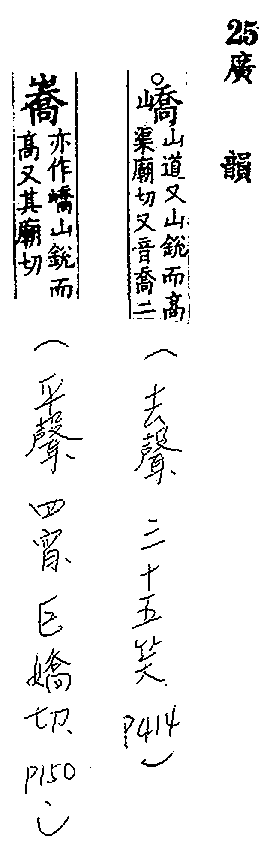 25廣韻
嶠山道又山銳而高渠廟切又音喬二
(去聲、三十五笑、P414)
嶠亦作嶠山銳而高又其廟切
(平聲、四宵、巨嬌切、P150)